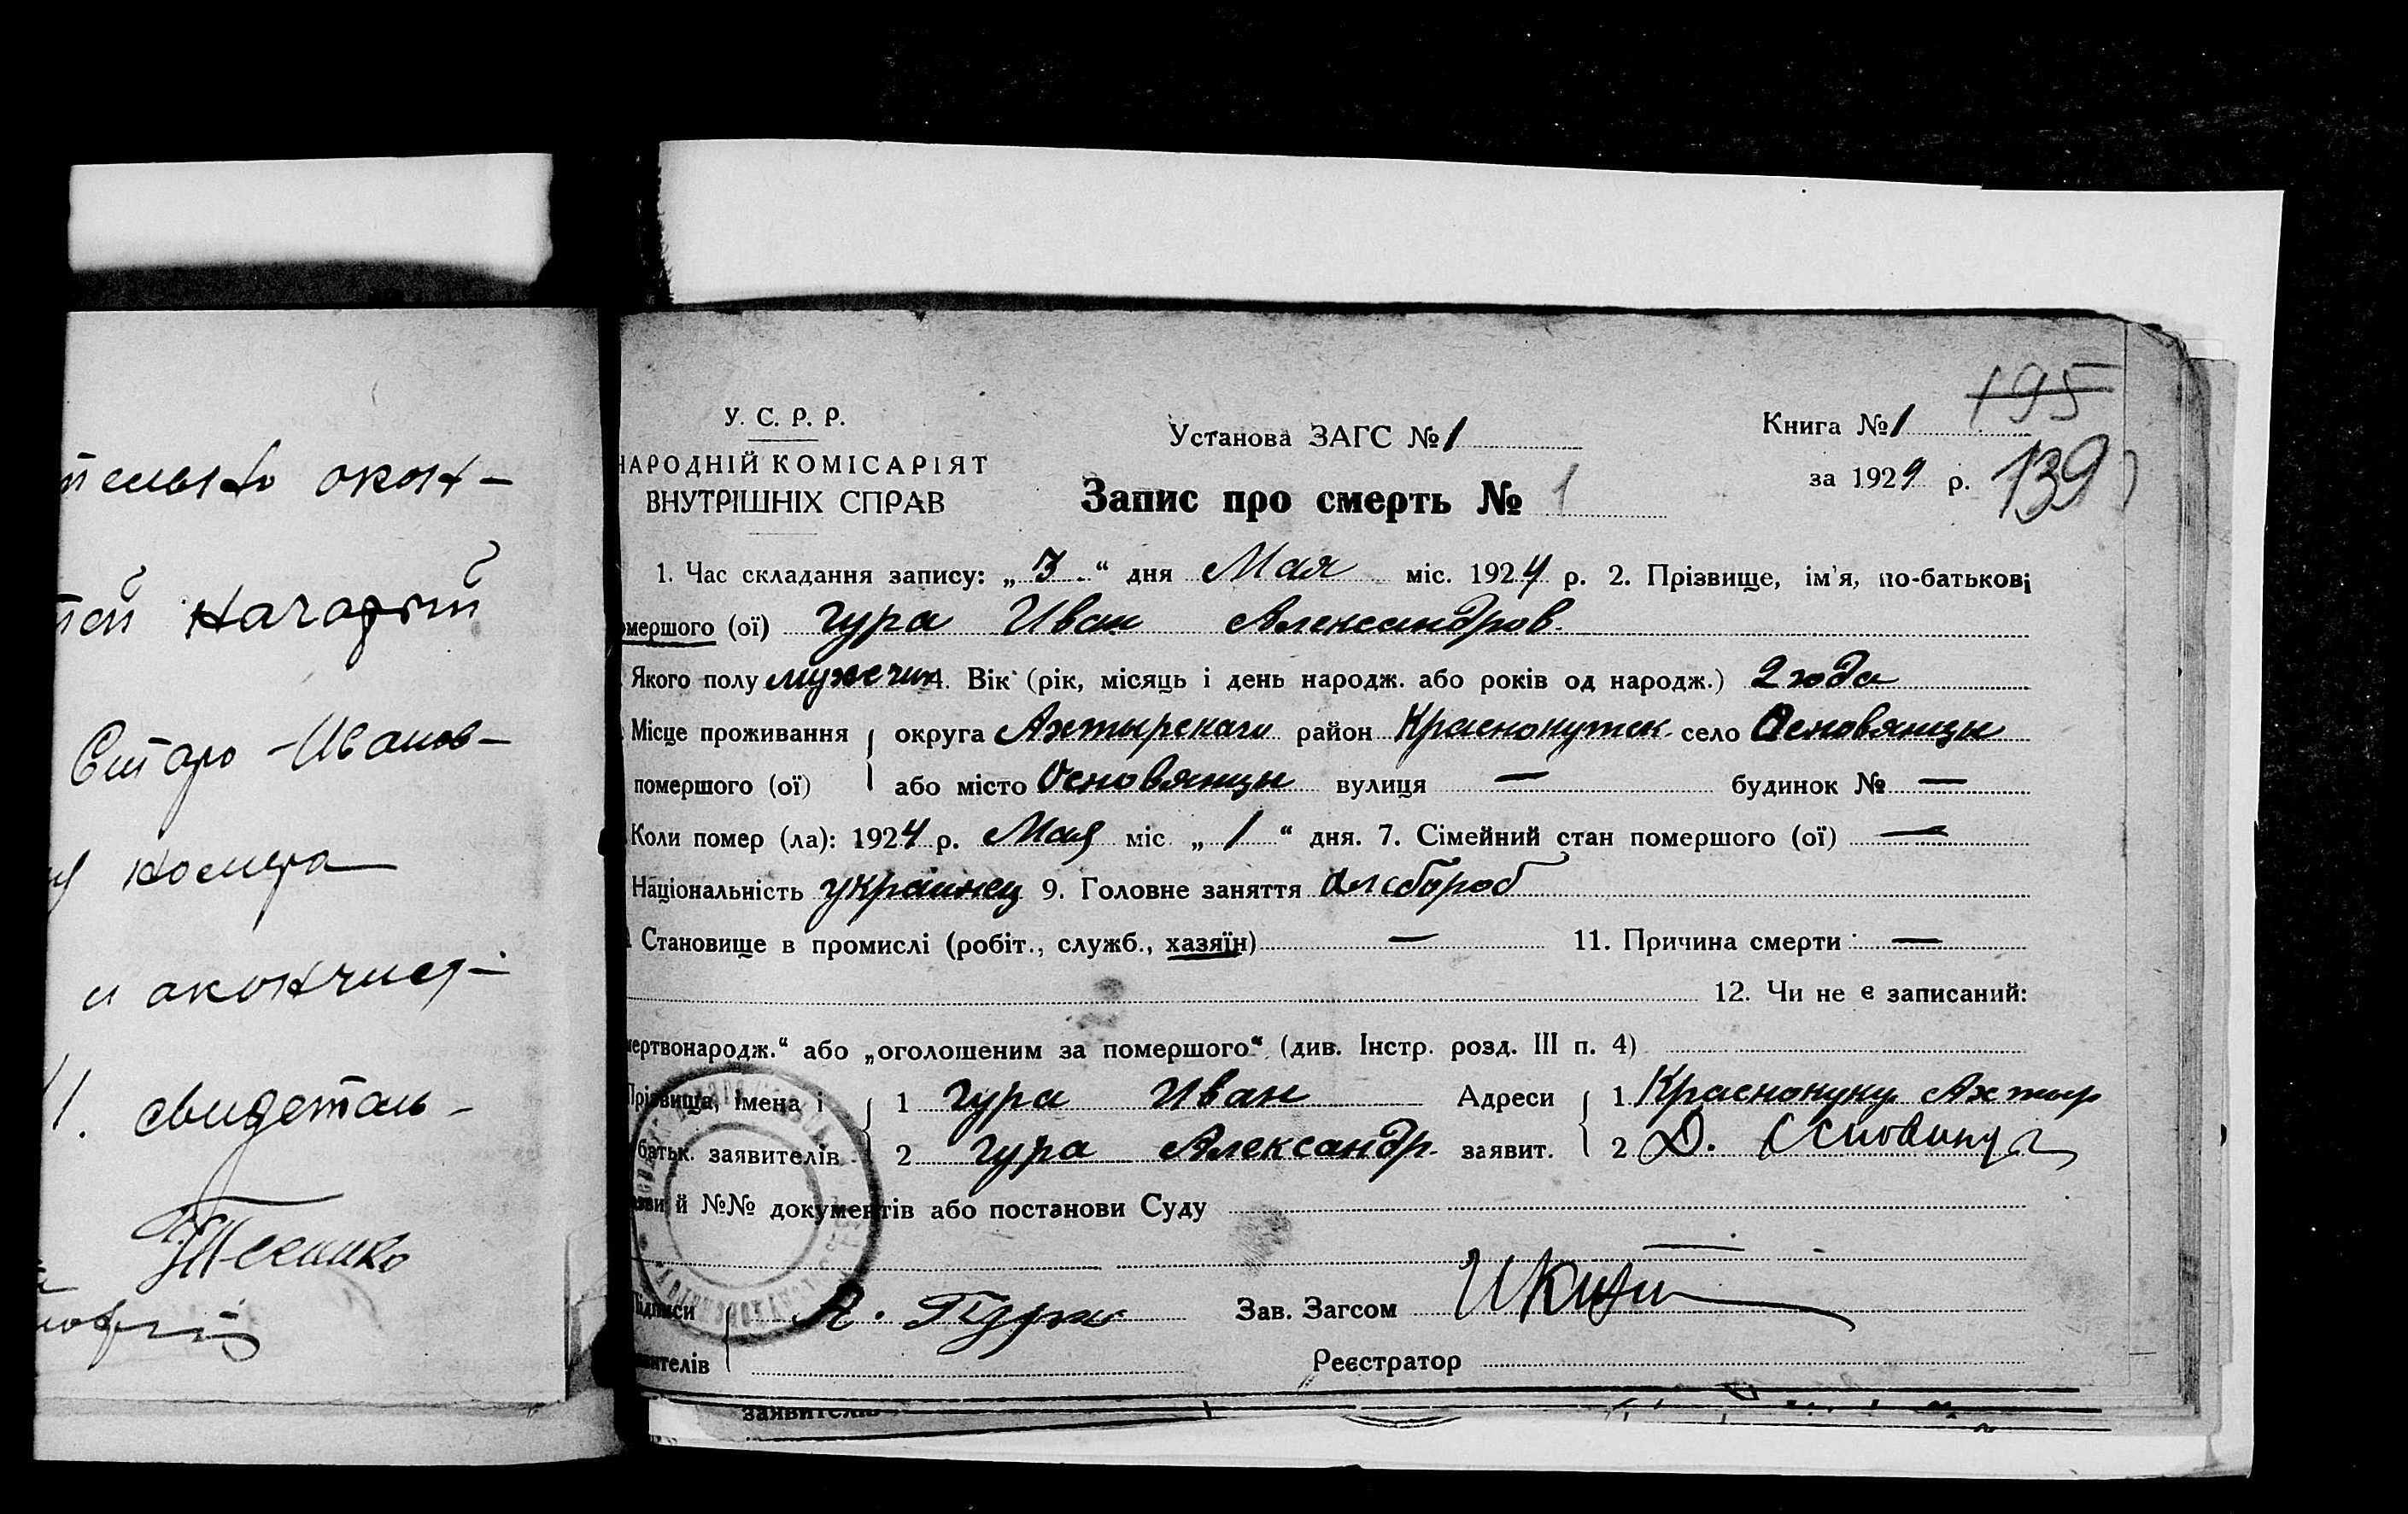 окон-
Старо-Иванов-
номера
и окончил-
свидетель-
У. С. Р. Р.
НАРОДНІЙ КОМІСАРІЯТ
ВНУТРІШНІХ СПРАВ
Установа ЗАГС № 1
Запис про смерть № 1
Книга № 1 195
за 1924 р. 139
1. Час складання запису: „ 3 “ дня Мая міс. 1924 р. 2. Прізвище, ім'я, по-батькові
помершого (ої) Гура Иван Александров
Якого полу мужчин 4. Вік (рік, місяць і день народж. або років од народж.) 2 года
Місце проживання округа Ахтырскаги район Краснокутск село Основянцы
помершого (ої) або місто Основянцы вулиця — будинок № —
Коли помер (ла): 1924 р. Мая міс. „ 1 “ дня. 7. Сімейний стан помершого (ої) —
Національність украинец 9. Головне заняття хлебороб
Становище в промислі (робіт., служб., хазяїн) — 11. Причина смерти: —
12. Чи не є записаний:
мертвонародж.“ або „оголошеним за помершого“ (див. Інстр. розд. III п. 4)
Прізвища, імена і 1 Гура Иван Адреси 1 Ахтыр
батьк. заявителів 2 Гура Александр. заявит. 2 Д.
й №№ документів або постанови Суду
Підписи А. Гура Зав. Загсом
заявителів Реєстратор
заявителів